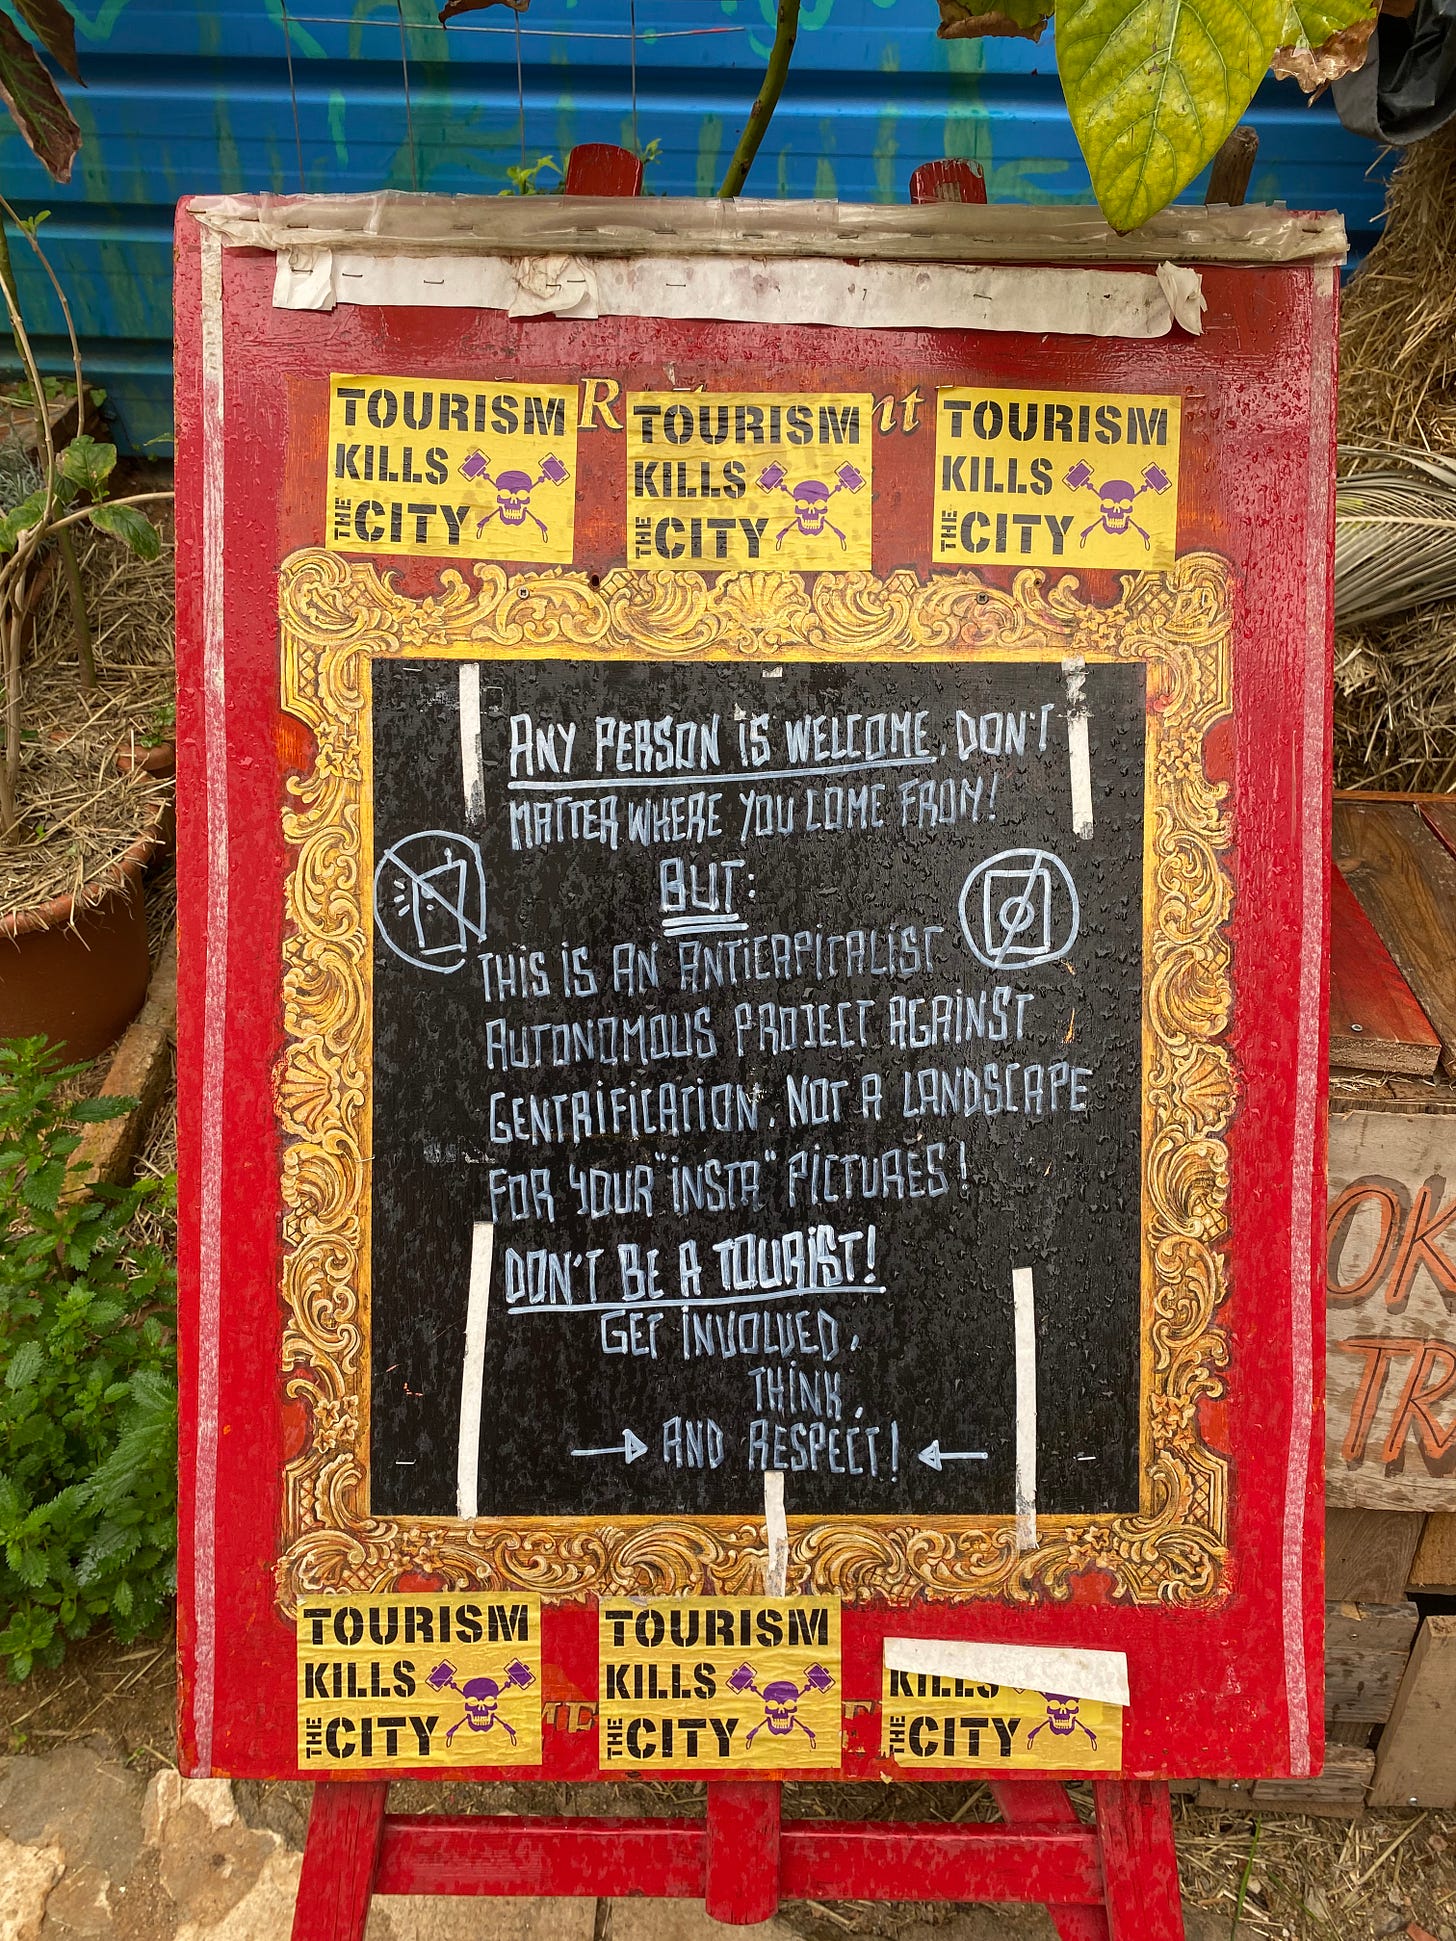 TOURISM
KILLS
THE CITY
TOURISM
KILLS
THE CITY
TOURISM
KILLS
THE CITY
ANY PERSON IS WELCOME. DON'T
MATTER WHERE YOU COME FROM!
BUT:
THIS IS AN ANTICAPITALIST
AUTONOMOUS PROJECT AGAINST
GENTRIFICATION. NOT A LANDSCAPE
FOR YOUR "INSTA" PICTURES!
DON'T BE A TOURIST!
GET INVOLVED.
THINK.
AND RESPECT!
TOURISM
KILLS
THE CITY
TOURISM
KILLS
THE CITY
KILLS
THE CITY